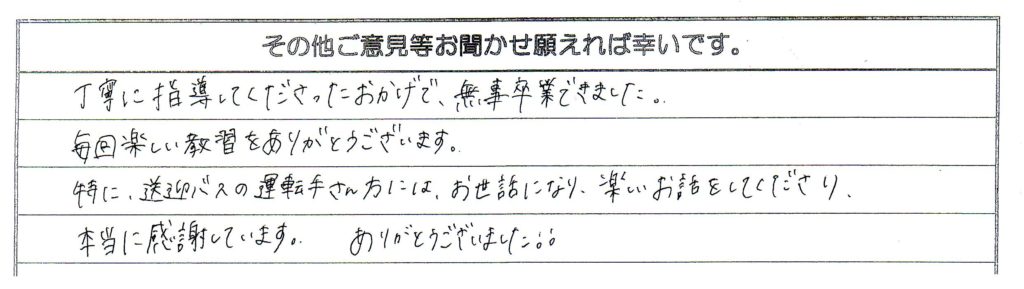 その他ご意見等お聞かせ願えれば幸いです。
丁寧に指導してくださったおかげで、無事卒業できました。
毎回楽しい教習をありがとうございます。
特に、送迎バスの運転手さん方には、お世話になり、楽しいお話をしてくださり、
本当に感謝しています。 ありがとうございました。